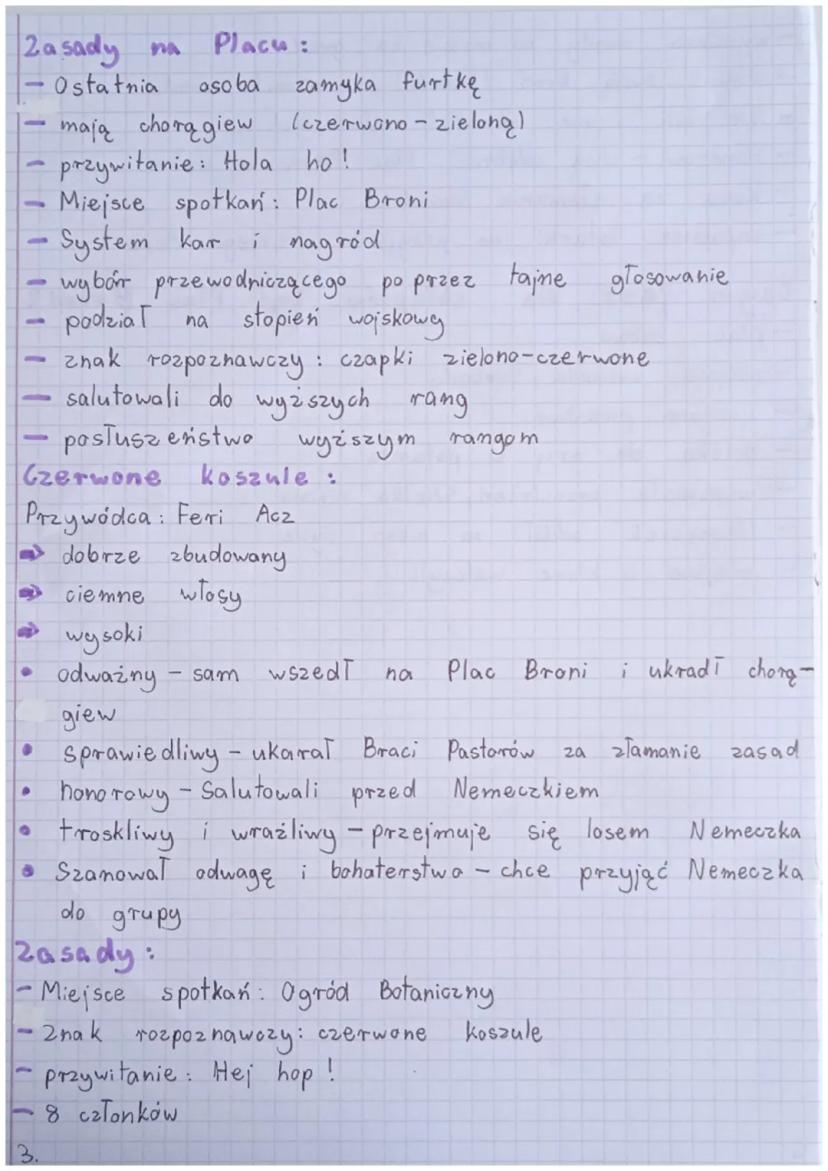 Zasady na Placu:
- Ostatnia osoba zamyka furtkę
- mają chorągiew (czerwono-zieloną)
- przywitanie: Hola ho!
- Miejsce spotkań: Plac Broni
- System kar i nagród
- wybór przewodniczącego poprzez tajne głosowanie
- podział na stopień wojskowy
- znak rozpoznawczy: czapki zielono-czerwone
- salutowali do wyższych rang
- posłuszeństwo wyższym rangom
Czerwone koszule:
Przywódca: Feri Acz
⇒ dobrze zbudowany
⇒ ciemne włosy
⇒ wysoki
• odważny - sam wszedł na Plac Broni i ukradł chorą-
giew
• sprawiedliwy - ukarał Braci Pastorów za złamanie zasad
• honorowy - Salutowali przed Nemeczkiem
• troskliwy i wrażliwy - przejmuje się losem Nemeczka
• Szanował odwagę i bohaterstwo - chce przyjąć Nemeczka
do grupy
Zasady:
- Miejsce spotkań: Ogród Botaniczny
- Znak rozpoznawczy: czerwone koszule
- przywitanie: Hej hop!
- 8 członków
3.